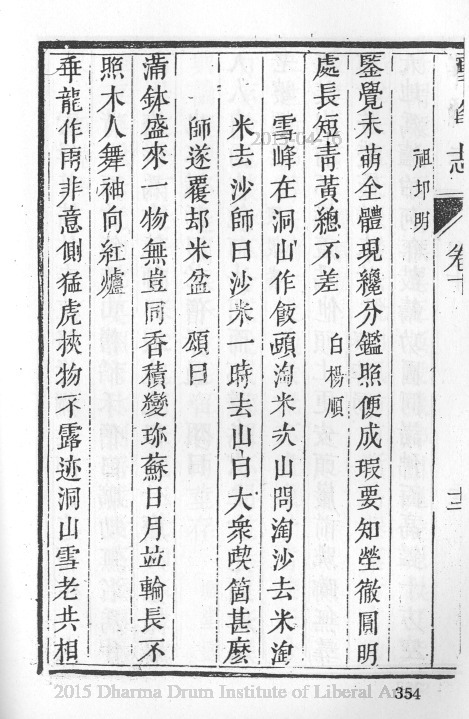 卷十
祖印明
鑒覺未萌全體現纔分鑑照便成瑕要知瑩徹圓明
處長短青黃總不差　白楊順
雪峰在洞山作飯頭淘米次山問淘沙去米淘
米去沙師曰沙米一時去山曰大衆喫箇甚麼
師遂覆却米盆　頌曰
滿鉢盛來一物無豈同香積變珍蘇日月並輪長不
照木人舞袖向紅爐
垂龍作雨非意側猛虎挾物不露迹洞山雪老共相
2015 Dharma Drum Institute of Liberal Arts
354